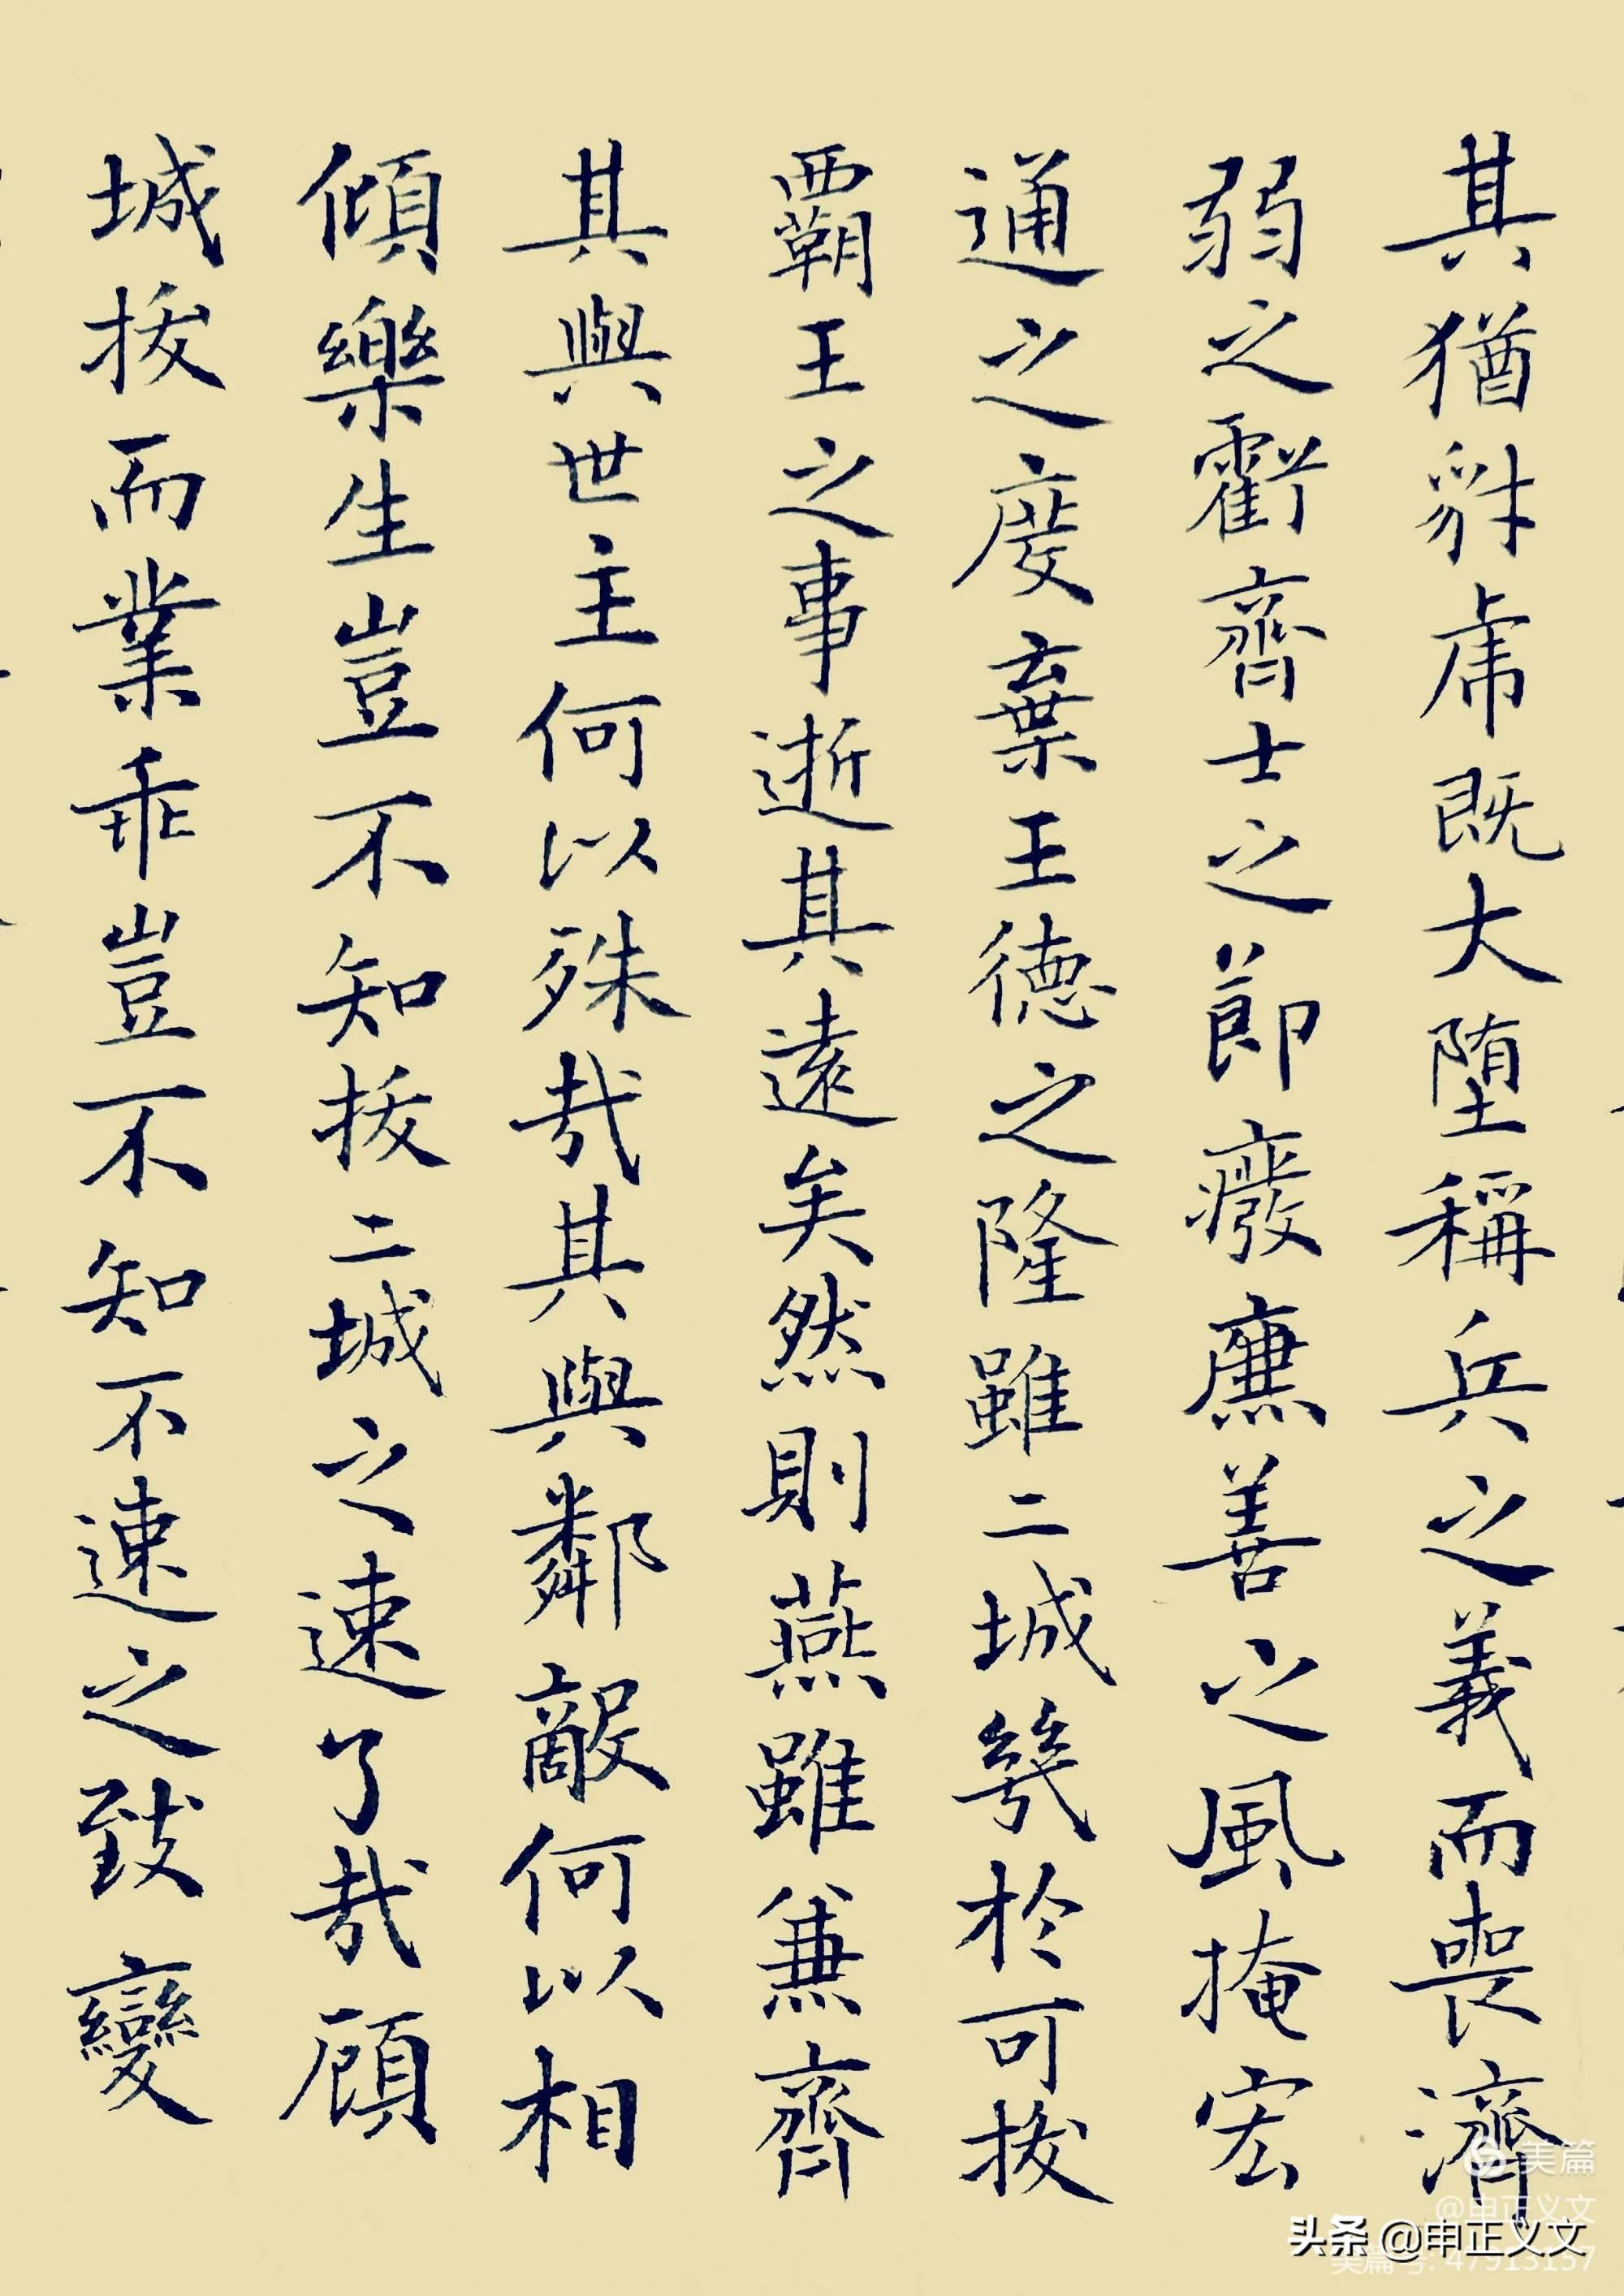 其猶豺虎既大墮稱兵之義而喪濟
弱之虧齊士之節癈廉善之風掩宏
通之度棄王德之隆雖二城幾於可拔
霸王之事逝其遠矣然則燕雖兼齊
其與世主何以殊哉其與鄰敵何以相
傾樂生豈不知拔二城之速了哉顧
城拔而業乖豈不知不速之致變
美篇
@申正义文
头条 @申正义文
美篇号: 47913157